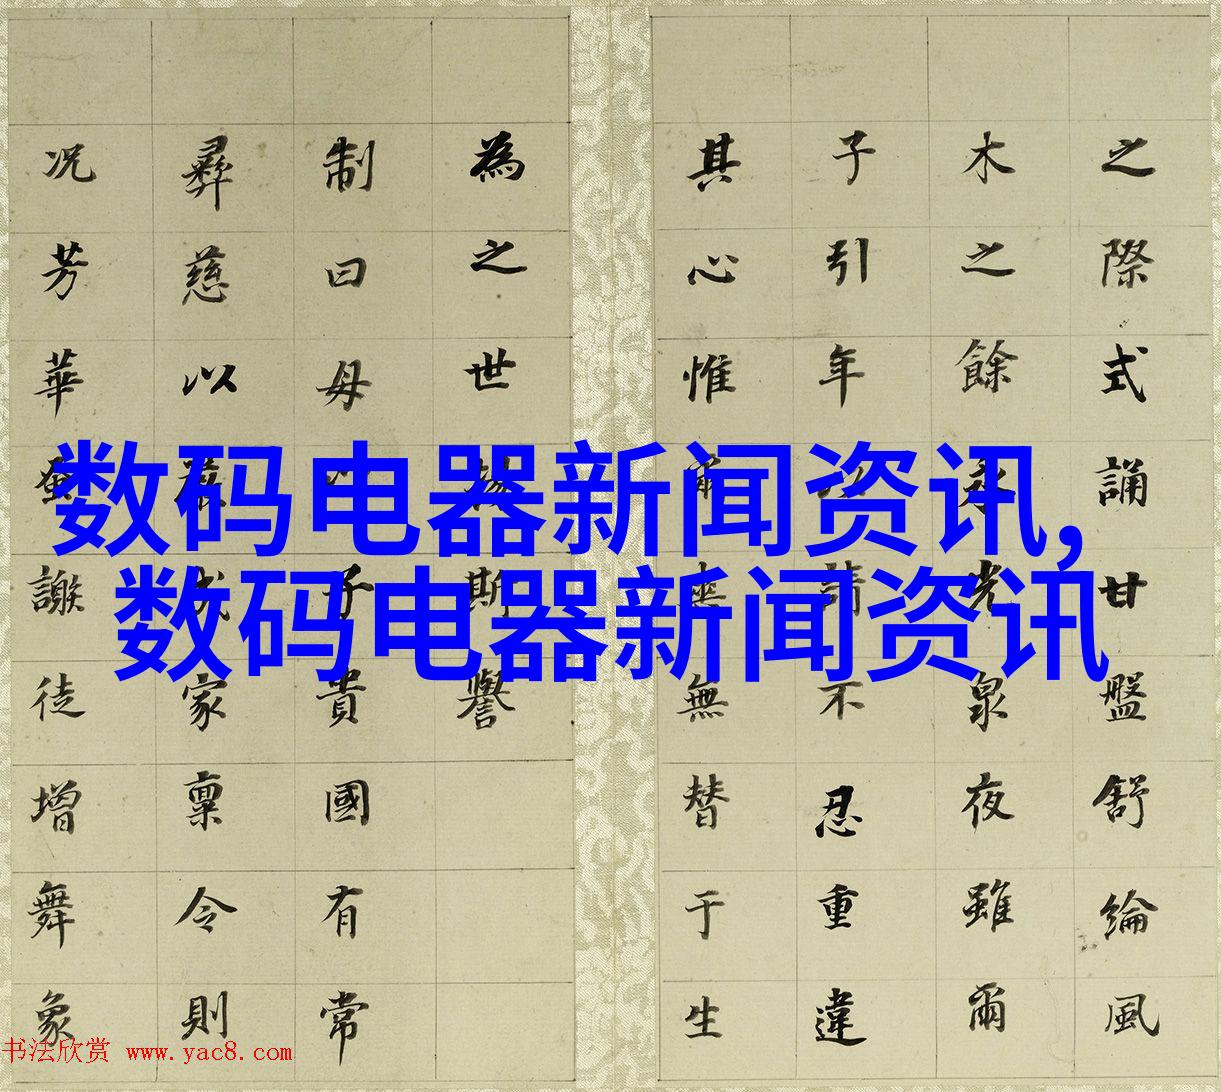 数码电器新闻资讯,
数码电器新闻资讯
之際式誦甘盤舒綸風
木之餘永光泉夜雖爾
子引年以請不忍重違
其心惟爾無替于生
為之世斯譽
制曰母以子貴國有常
彝慈以成家稟令則
況芳華蚤謝徒增舞象
书法欣赏 www.yac8.com